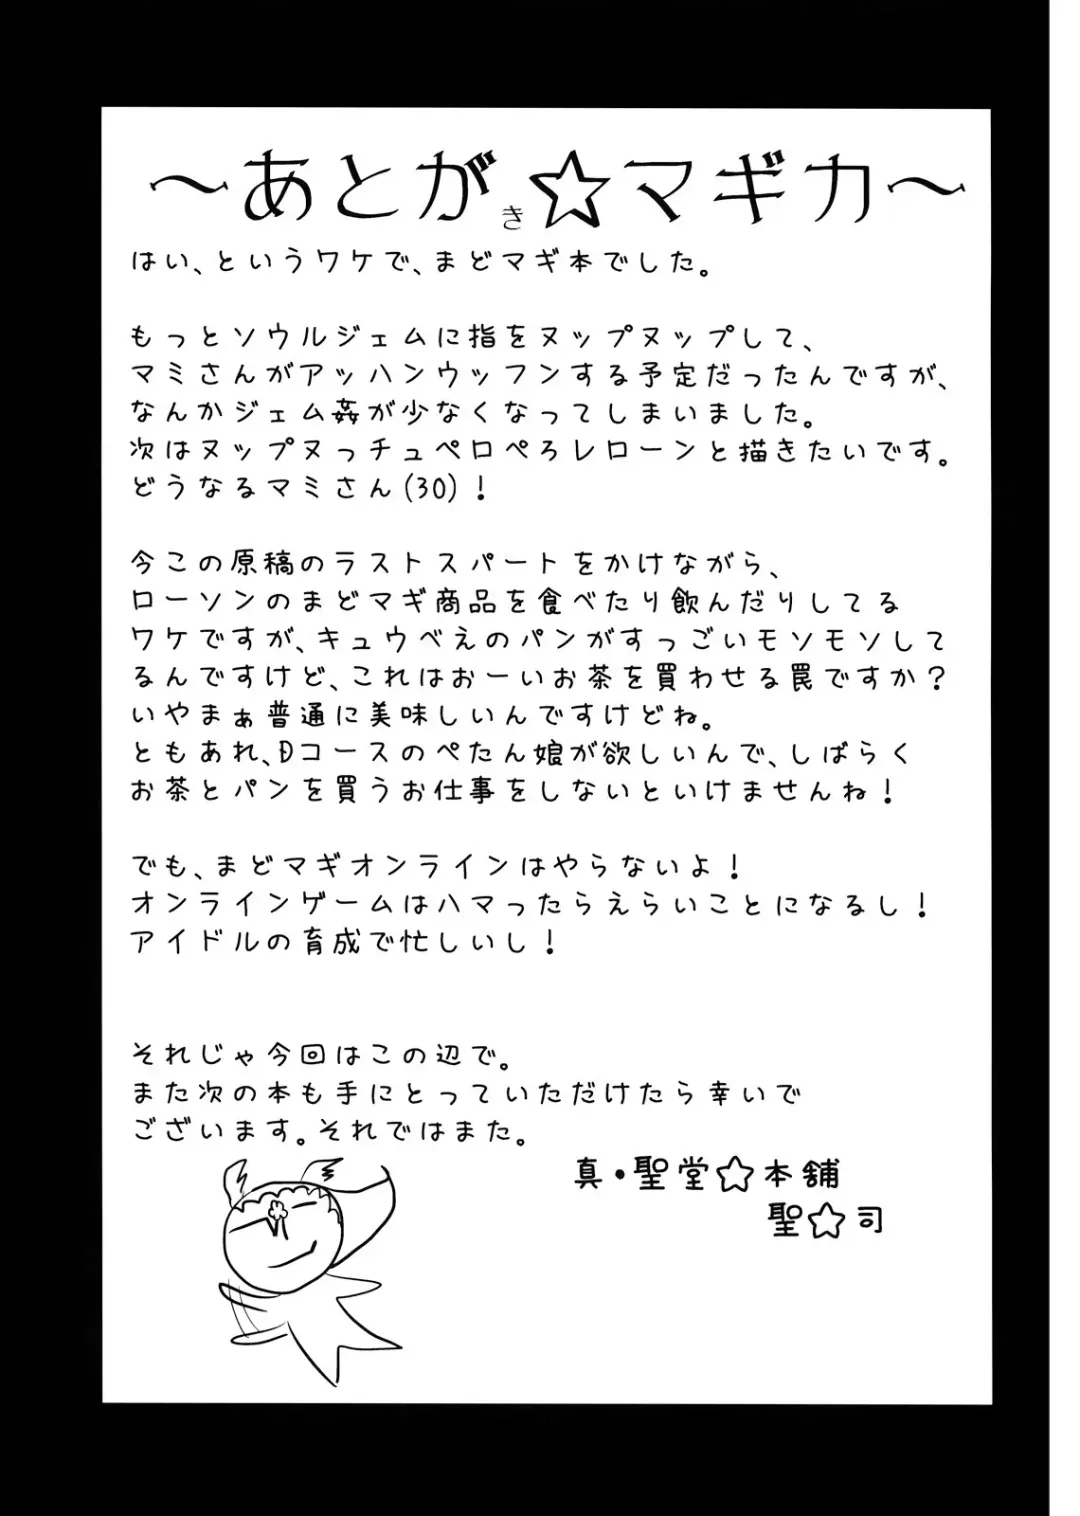 ～あとがき☆マギカ～
はい、というワケで、まどマギ本でした。
もっとソウルジェムに指をヌップヌップして、
マミさんがアッハンウッフンする予定だったんですが、
なんかジェム姦が少なくなってしまいました。
次はヌップヌっチュペロぺろレローンと描きたいです。
どうなるマミさん(30)！
今この原稿のラストスパートをかけながら、
ローソンのまどマギ商品を食べたり飲んだりしてる
ワケですが、キュウべえのパンがすっごいモソモソして
るんですけど、これはおーいお茶を買わせる罠ですか？
いやまぁ普通に美味しいんですけどね。
ともあれ、Dコースのぺたん娘が欲しいんで、しばらく
お茶とパンを買うお仕事をしないといけませんね！
でも、まどマギオンラインはやらないよ！
オンラインゲームはハマったらえらいことになるし！
アイドルの育成で忙しいし！
それじゃ今回はこの辺で。
また次の本も手にとっていただけたら幸いで
ございます。それではまた。
真・聖堂☆本舗
聖☆司